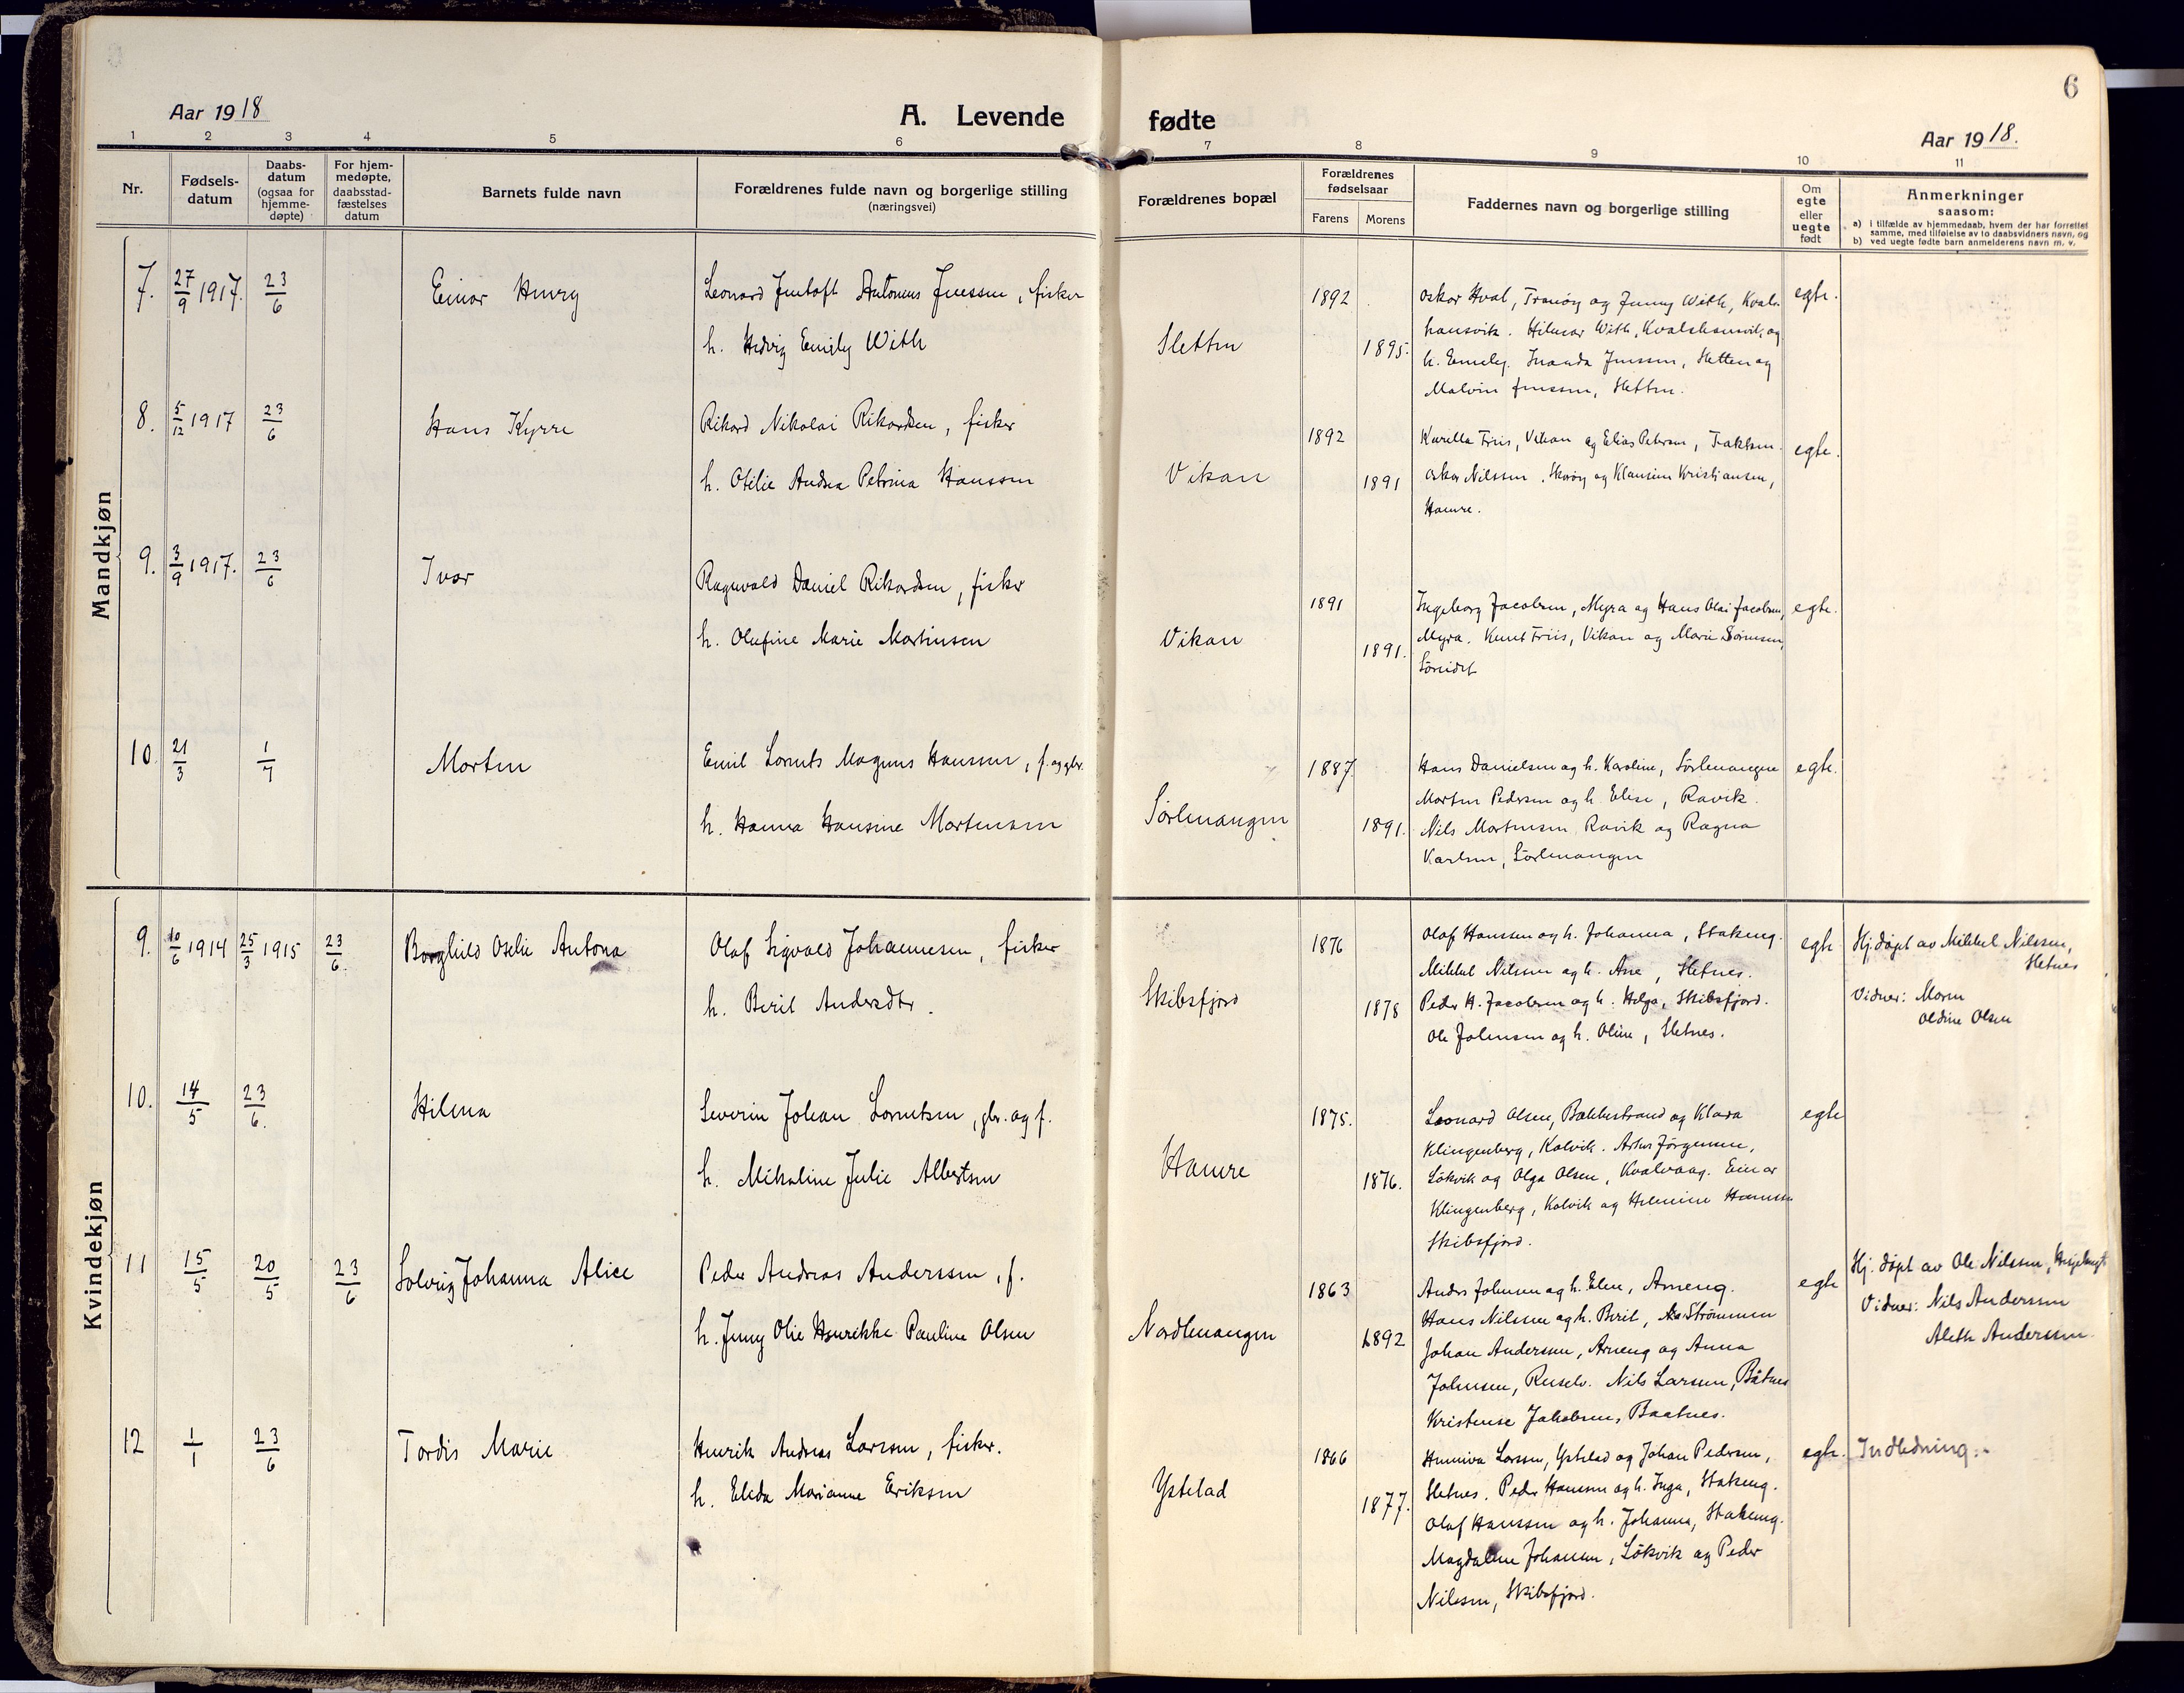 6
Aar 1918
A. Levende fødte
Aar 1918.
1 2 3 4 5 6 7 8 9 10 11
Nr.
Fødsels-
datum
Daabs-
datum
(ogsaa for
hjemme-
døpte)
For hjem-
medøpte,
daabsstad-
fæstelses
datum
Barnets fulde navn
Forældrenes fulde navn og borgerlige stilling
(næringsvei)
Forældrenes bopæl
Forældrenes
fødselsaar
Farens Morens
Faddernes navn og borgerlige stilling
Om
egte
eller
uegte
født
Anmerkninger
saasom:
a) i tilfælde av hjemmedaab, hvem der har forrettet
samme, med tilføielse av to daabsvidners navn, og
b) ved uegte fødte barn anmelderens navn m. v.
Mandkjøn
7. 27/9 1917. 23/6
Einar Henry
Leonard Antonius Jenssen, fisker
h. Hedvig Emily With
Sletten
1892
1895.
Oskar Hval, Tranöy og Jenny With, Kval-
hausvik. Hilmar With, Kvalshausvik og
h. Emely. Jenssen, Sletten og
Malvin Jenssen, Sletten.
egte.
8. 5/12 1917 23/6
Hans Kyrre
Rikard Nikolai Rikardsen, fisker
h. Otilie Andrea Petrina Hanssen
Vikan
1892
1891
Friis, Vikan og Elias Petersen,
Oskar Nilssen, Skoröy og Klausine Kristiansen,
Hamre.
egte.
9. 3/9 1917. 23/6
Ivar
Ragnvald Daniel Rikardsen, fisker
h. Olufine Marie Martinsen
Vikan
1891
1891.
Ingeborg Jacobsen, Myra og Hans Olai Jacobsen,
Myra. Knut Friis, Vikan og Marie Sörensen,
Töreidet
egte.
10. 21/3 1/7
Morten
Emil Lorents Magnus Hanssen, f. og gbr.
h. Hanna Hansine Mortensen
Sörlenangen
1887.
1891.
Hans Danielsen og h. Karoline, Sörlenangen
Morten Pedersen og h. Elise, Ravik.
Nils Mortensen, Ravik og Ragna
Karlsen, Sörlenangen
egte.
Kvindekjøn
9. 10/6 1914 25/3 1915 23/6.
Borghild Oselie Antona
Olaf Sigvald Johannesen, fisker
h. Berit Andersdtr.
Skibsfjord
1876
1878
Olaf Hanssen og h. Johanna, Stakeng.
Mikkel Nilssen og h. Ane, Sletnes.
Peder H. Jacobsen og h. Helga, Skibsfjord.
Ole Johnsen og h. Oline, Sletnes.
egte
Hj. döpt av Mikkel Nilssen,
Sletnes
Vidner: Moren
Oldine Olsen
10. 14/5 23/6.
Hilma
Severin Johan Lorentsen, gbr. og f.
h. Mikaline Julie Albertsen
Hamre
1875.
1876.
Leonard Olsen, Bakkestrand og Klara
Klingenberg, Kalvik. Jörgensen,
Lökvik og Olga Olsen, Kvalvaag. Einar
Klingenberg, Kalvik og Helmine Hanssen
Skibsfjord.
egte
11 15/5 20/5 23/6
Solveig Johanna Alice
Peder Andreas Anderssen, f.
h. Jenny Olie Henrikke Pauline Olsen
Nordlenangen
1863
1892
Anders Johnsen og h. Elen, Arneng.
Hans Nilssen og h. Berit, Strömmen
Johan Anderssen, Arneng og Anna
Johnsen, Ruselv. Nils Larssen, Båtnes
Kristense Jakobsen, Baatnes.
egte
Hj. döpt av Ole Nilssen,
Vidner: Nils Anderssen
Aleth Anderssen.
12 1/1 23/6
Tordis Marie
Henrik Andreas Larssen, fisker.
h. Elida Marianne Eriksen
Ystelad
1866
1877.
Hunniva Larssen, Ystelad og Johan Pedersen,
Sletnes. Peder Hanssen og h. Inga, Stakeng.
Olaf Hanssen og h. Johanna, Stakeng.
Magdalene Johansen, Lökvik og Peder
Nilssen, Skibsfjord.
egte.
Indledning.